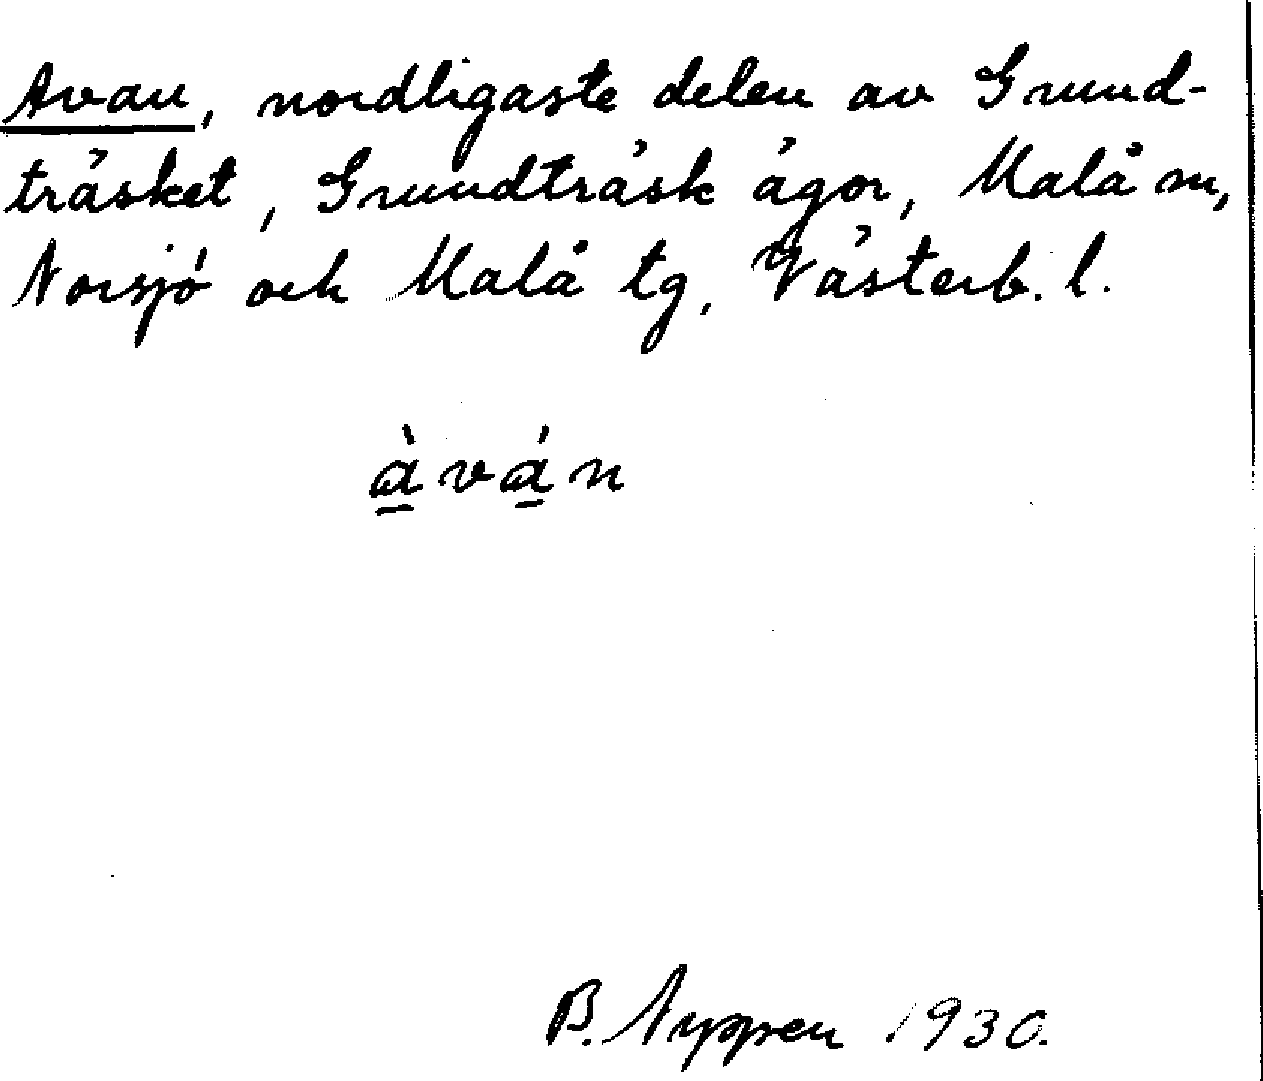 Avan, nordligaste delen av Grund-
träsket, Grundträsk ägor, Malå sn,
Norsjö och Malå tg, Västerb. l.
à̱vá̱n
B. Nyppen 1930.